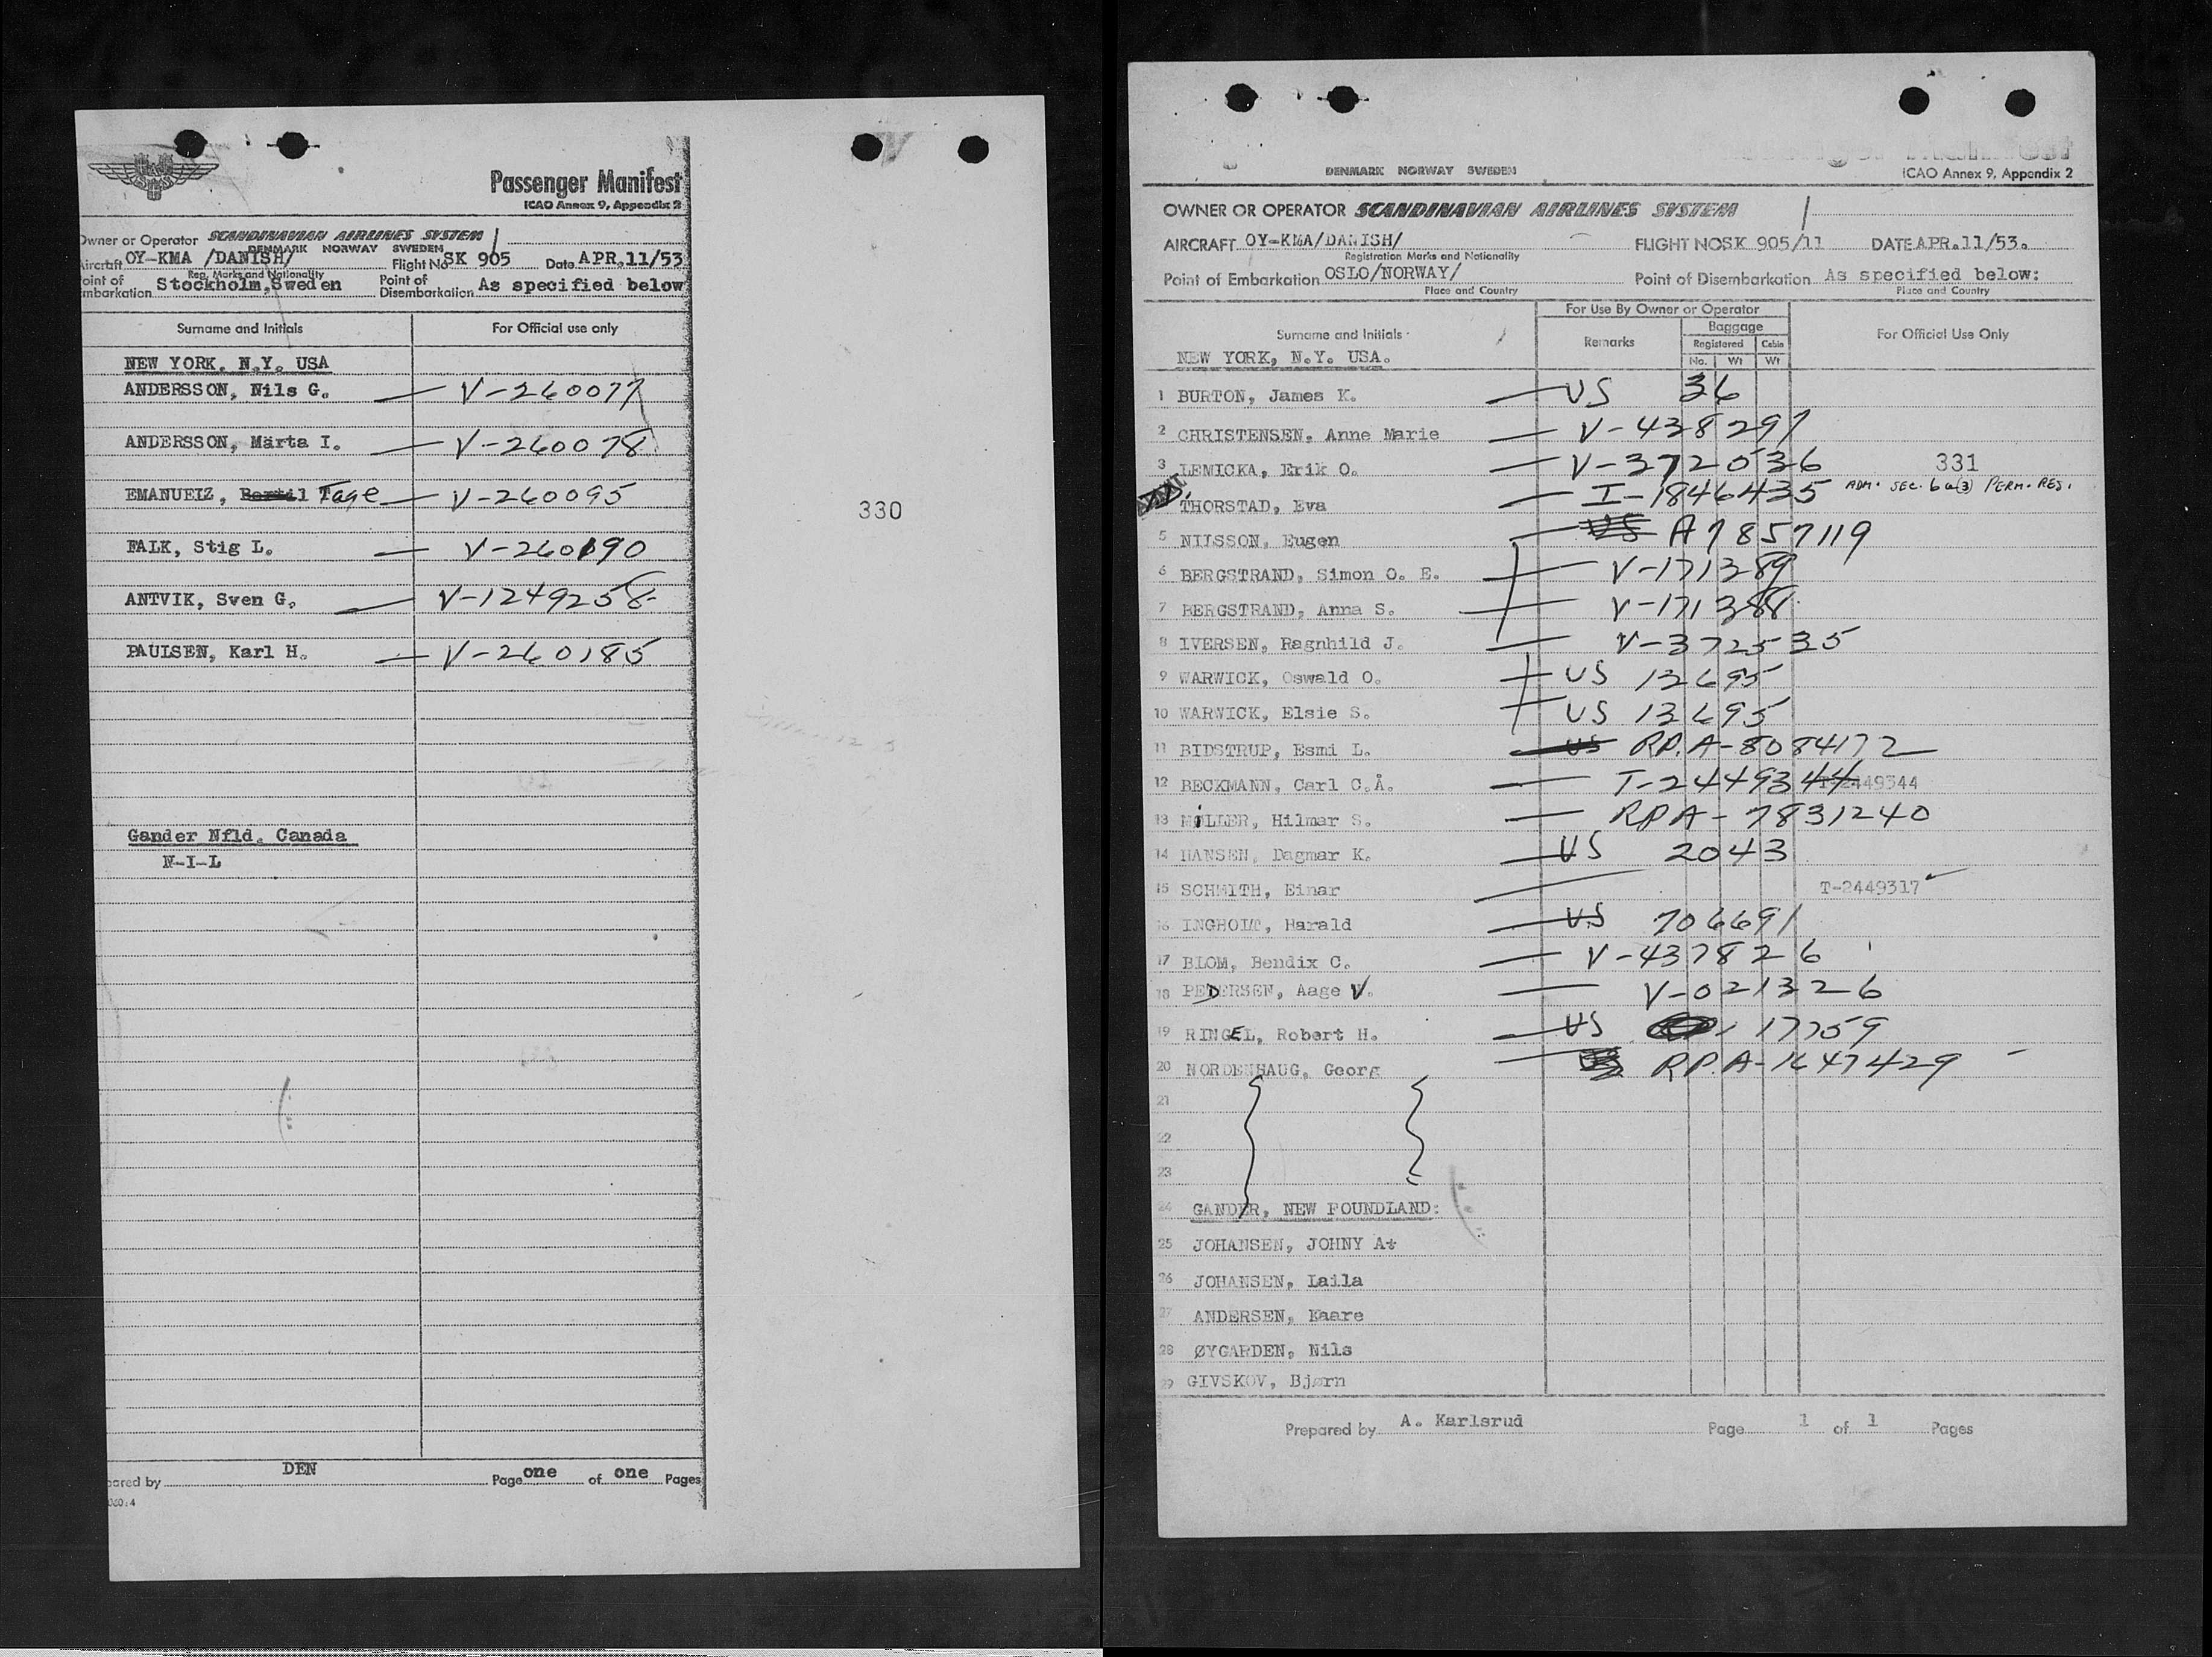 Passenger Manifest
ICAO Annex 9, Appendix 2
Owner or Operator SCANDINAVIAN AIRLINES SYSTEM
DENMARK NORWAY SWEDEN
Aircraft OY-KMA /DANISH/ Flight No SK 905 Date APR.11/53
Reg. Marks and Nationality
Point of Embarkation Stockholm,Sweden Point of Disembarkation As specified below
Surname and Initials For Official use only
NEW YORK. N.Y. USA
ANDERSSON, Nils G. V-260077
ANDERSSON, Märta I. V-260078
EMANUELZ, Bertil Tage V-260095
330
FALK, Stig L. V-260190
ANTVIK, Sven G. V-1249258
PAULSEN, Karl H. V-260185
Gander Nfld. Canada
N-I-L
pared by DEN Page one of one Pages
DENMARK NORWAY SWEDEN
Passenger Manifest
ICAO Annex 9, Appendix 2
OWNER OR OPERATOR SCANDINAVIAN AIRLINES SYSTEM
AIRCRAFT OY-KMA/DANISH/ FLIGHT NO SK 905/11 DATE APR.11/53.
Registration Marks and Nationality
Point of Embarkation OSLO/NORWAY/ Point of Disembarkation As specified below:
Place and Country Place and Country
For Use By Owner or Operator
Surname and Initials Remarks Baggage For Official Use Only
Registered Cabin
NEW YORK, N.Y. USA. No. Wt Wt
1 BURTON, James K. US 36
2 CHRISTENSEN, Anne Marie V-438297
3 LEMICKA, Erik O. V-372036 331
THORSTAD, Eva I-1846435 ADM. SEC. 6a(3) PERM. RES.
5 NILSSON, Eugen US A7857119
6 BERGSTRAND, Simon O. E. V-171389
7 BERGSTRAND, Anna S. V-171388
8 IVERSEN, Ragnhild J. V-372535
9 WARWICK, Oswald O. US 13695
10 WARWICK, Elsie S. US 13695
11 BIDSTRUP, Esmi L. US RP.A-8084172
12 BECKMANN, Carl C.Å. T-2449344 T-2449344
13 MiLLER, Hilmar S. RPA-7831240
14 HANSEN, Dagmar K. US 2043
15 SCHMITH, Einar T-2449317
16 INGHOLT, Harald US 706691
17 BLOM, Bendix C. V-437826
18 PEDERSEN, Aage V. V-021326
19 RINGEL, Robert H. US 17759
20 NORDENHAUG, Georg RP.A-1647429
21
22
23
24 GANDER, NEW FOUNDLAND:
25 JOHANSEN, JOHNY A
26 JOHANSEN, Laila
27 ANDERSEN, Kaare
28 ØYGARDEN, Nils
29 GIVSKOV, Bjørn
Prepared by A. Karlsrud Page 1 of 1 Pages